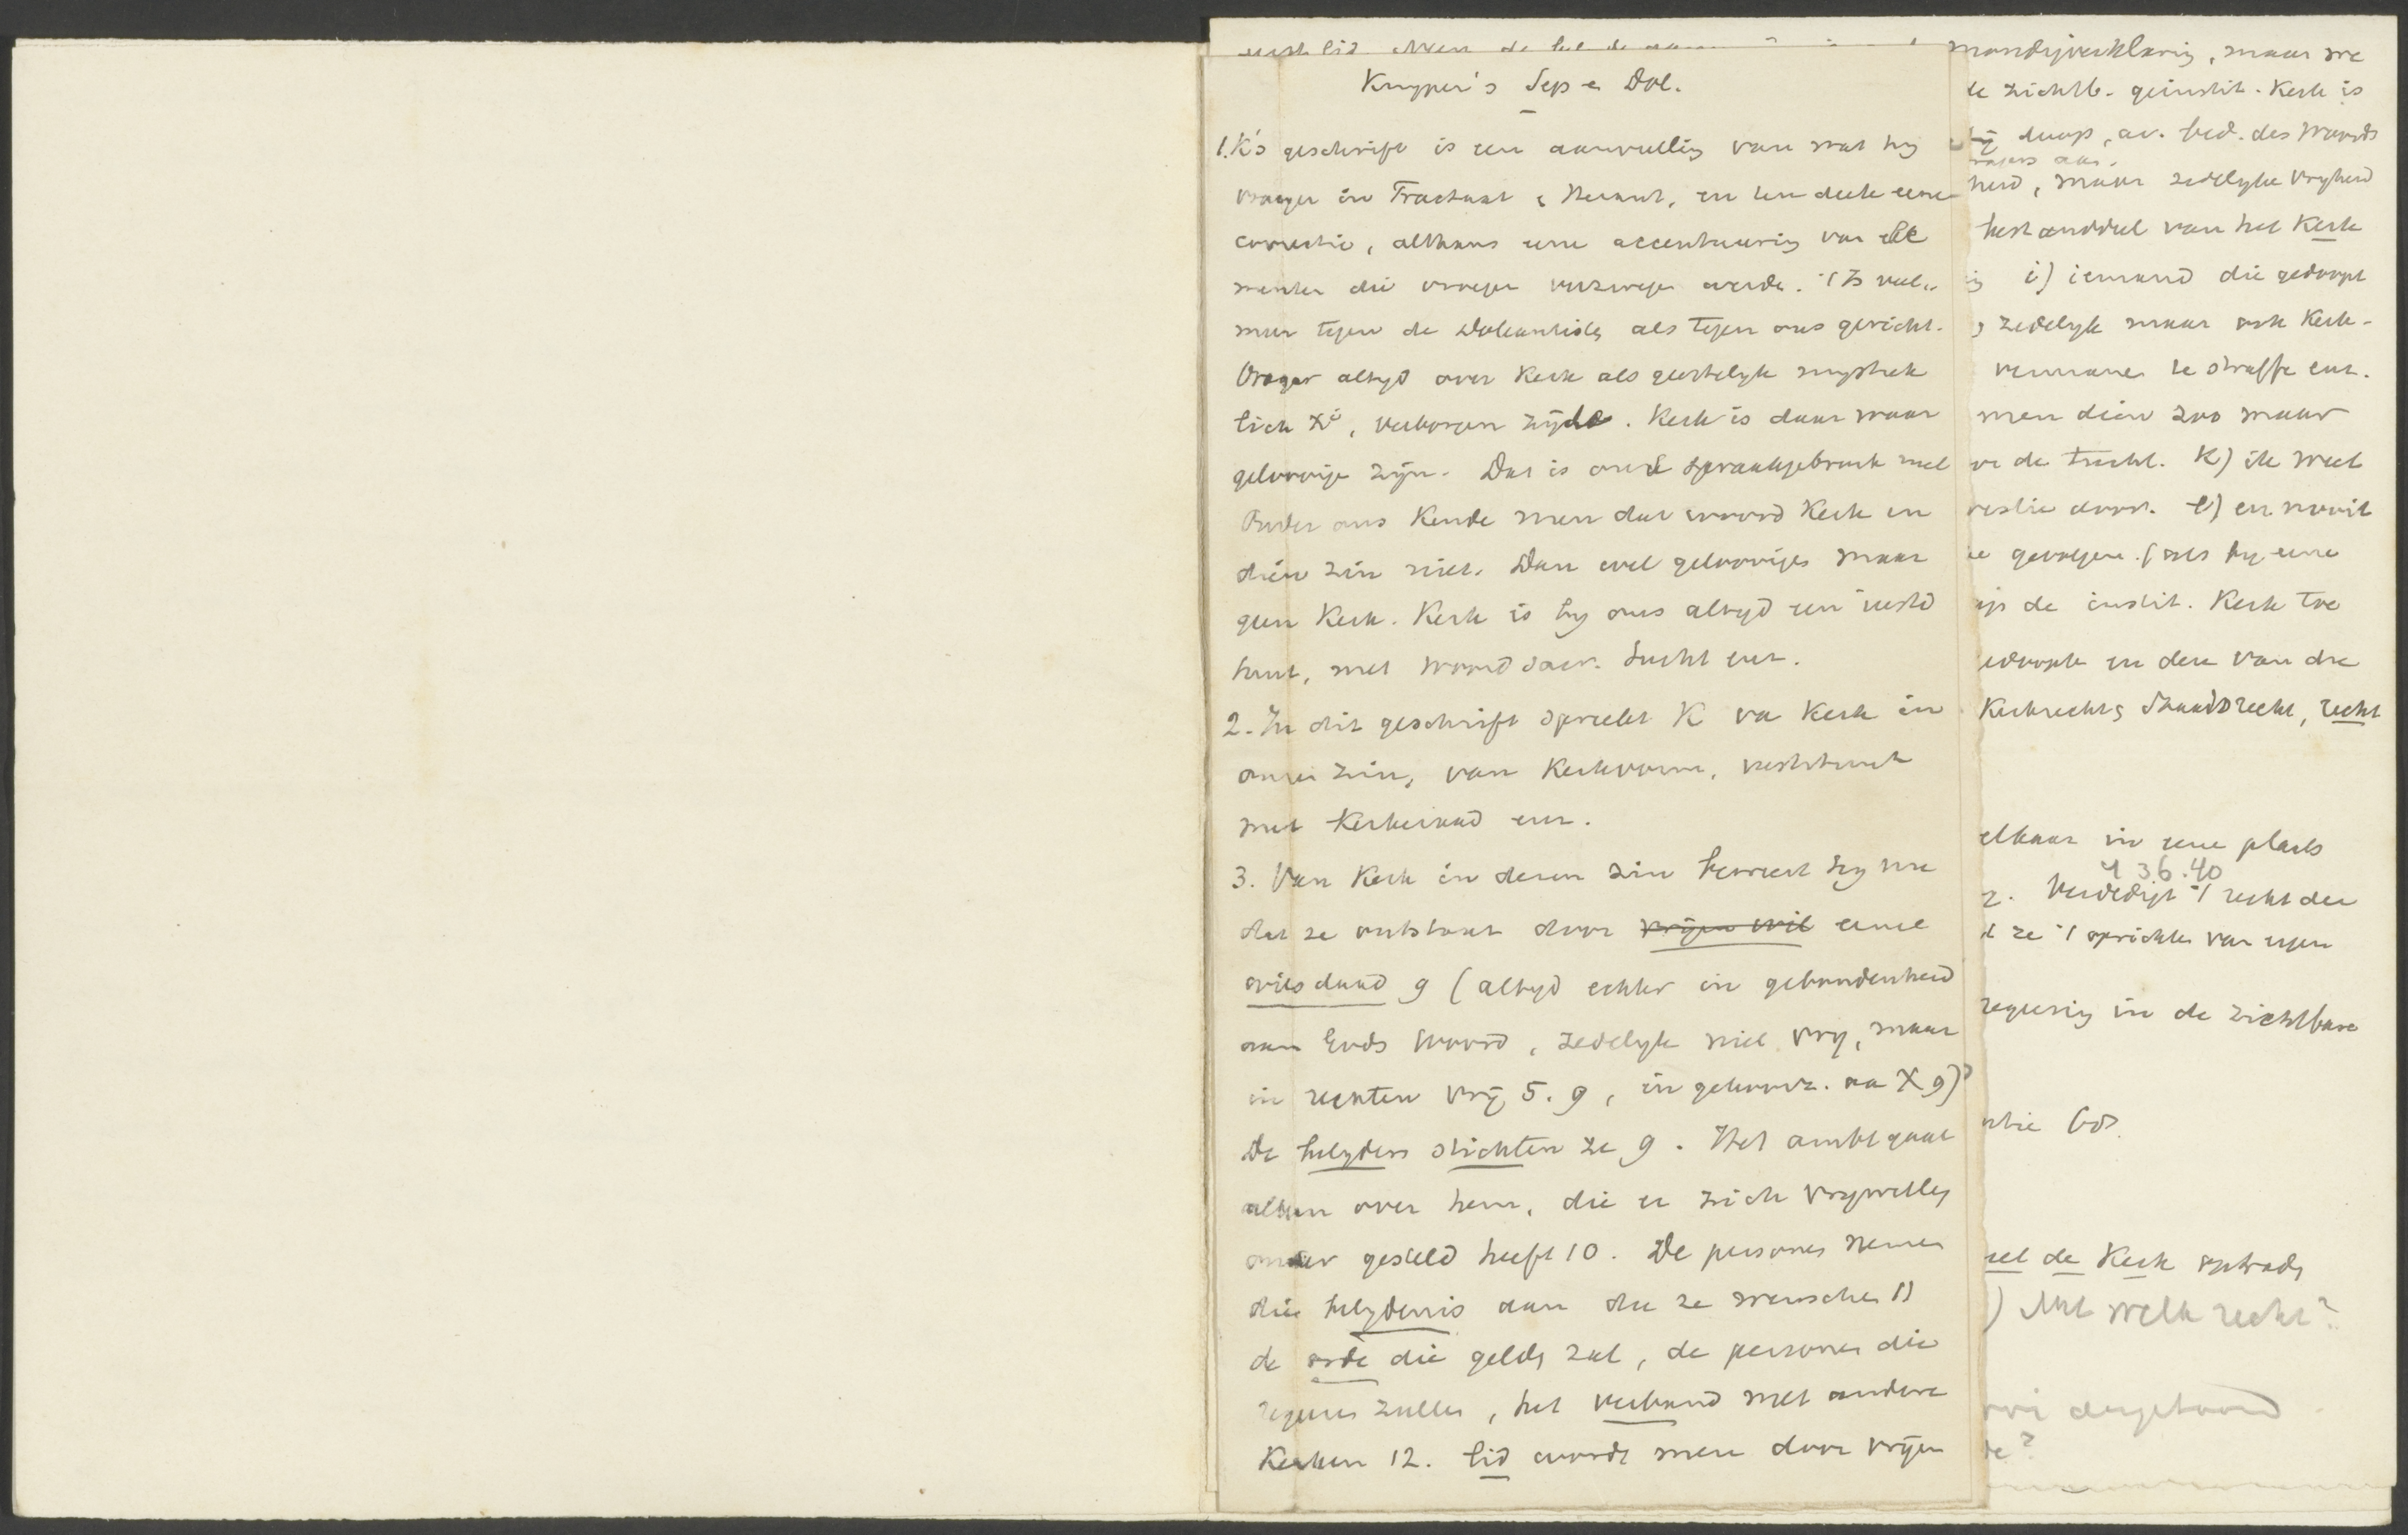 Kuyper's Sep en Dol.
1. K's geschrift is een aanvulling van wat hij
vroeger in Tractaat & Heraut, en ten deele eene
correctie, althans eene accentueering van ele
menten die vroeger verzwegen werden. 't Is veel
meer tegen de Doleantie als tegen ons gericht.
Vroeger altijd over Kerk als geestelijk mystiek
lich Xi, verborgen zijde. Kerk is daar waar
geloovige zijn. Dat is ons spraakgebruik niet
Onder ons Kende men dat woord Kerk in
dien zin niet. Dan wel geloovigen maar
geen Kerk. Kerk is bij ons altijd een insti
tuut, met woord sacr. tucht enz.
2. In dit geschrift spreekt K van Kerk in
onzen zin, van Kerkvorm, instituut
met Kerkeraad enz.
3. Van Kerk in dezen zin beweert hij nu
dat ze ontstaat door vrijen wil eene
wilsdaad 9 (altijd echter in gebondenheid
aan Gods Woord, zedelijk niet vrij, maar
in rechten vrij 5. 9, in gehoorz. aan X 9)
De belijders stichten ze 9. Het ambt gaat
alleen over hem, die er zich vrijwillig
onder gesteld heeft 10. De personen nemen
die belijdenis aan die ze wenschen 11
de orde die gelden zal, de personen die
regeeren zullen, het verband met andere
Kerken 12. Lid wordt men door vrijen
mondijverklaring, maar we
de zichtb. geinstit. Kerk is
doop, av. bed. des Woords
heid, maar zedelijke vrijheid
bestanddeel van het Kerk
i) iemand die gedoopt
zedelijk maar ook Kerk-
vermanen te straffen enz.
men dien zoo maar
de tucht. K) ik weet
door. l) en nooit
gevolgen. (als hij eene
op de instit. Kerk toe
gedoopte en den van die
Kerkrecht, Staatsrecht, recht
elkaar in eene plaats
4 36.40
2. Verdedigt 't recht der
ze 't oprichten van eigen
regeering in de zichtbare
de Kerk optreden
) Met welk recht?
aangetoond